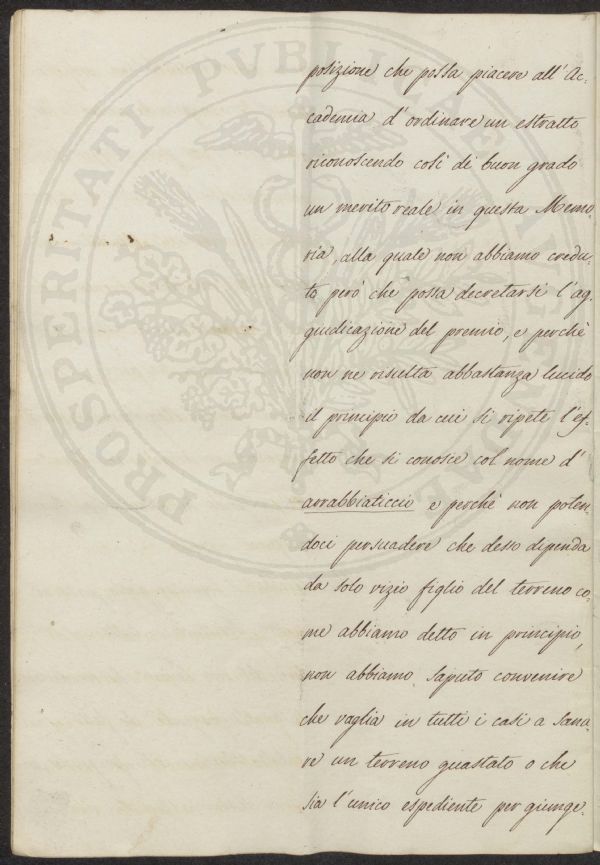 posizione che possa piacere all'Ac-
cademia d'ordinare un estratto
riconoscendo così di buon grado
un merito reale in questa Memo-
ria, alla quale non abbiamo credu-
to però che possa decretarsi l'ag-
giudicazione del premio, e perchè
non ne risulta abbastanza lucido
il principio da cui si ripete l'ef-
fetto che si conosce col nome d'
arrabbiaticcio e perchè non poten-
doci persuadere che desso dipenda
da solo vizio figlio del terreno co-
me abbiamo detto in principio,
non abbiamo saputo convenire
che vaglia in tutti i casi a sana-
re un terreno guastato o che
sia l'unico espediente per giunge-
PROSPERITATI PVBLICAE AVGENDAE